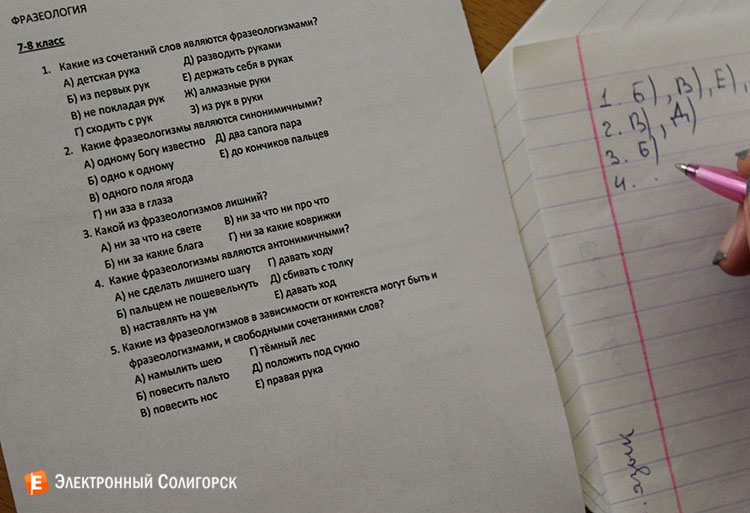 ФРАЗЕОЛОГИЯ
7-8 класс
1. Какие из сочетаний слов являются фразеологизмами?
А) детская рука Д) разводить руками
Б) из первых рук Е) держать себя в руках
В) не покладая рук Ж) алмазные руки
Г) сходить с рук З) из рук в руки
2. Какие фразеологизмы являются синонимичными?
А) одному Богу известно Д) два сапога пара
Б) одно к одному Е) до кончиков пальцев
В) одного поля ягода
Г) ни аза в глаза
3. Какой из фразеологизмов лишний?
А) ни за что на свете В) ни за что ни про что
Б) ни за какие блага Г) ни за какие коврижки
4. Какие фразеологизмы являются антонимичными?
А) не сделать лишнего шагу Г) давать ходу
Б) пальцем не пошевельнуть Д) сбивать с толку
В) наставлять на ум Е) давать ход
5. Какие из фразеологизмов в зависимости от контекста могут быть и
фразеологизмами, и свободными сочетаниями слов?
А) намылить шею Г) тёмный лес
Б) повесить пальто Д) положить под сукно
В) повесить нос Е) правая рука
1. Б), В), Е),
2. В), Д)
3. Б)
4.
Электронный Солигорск